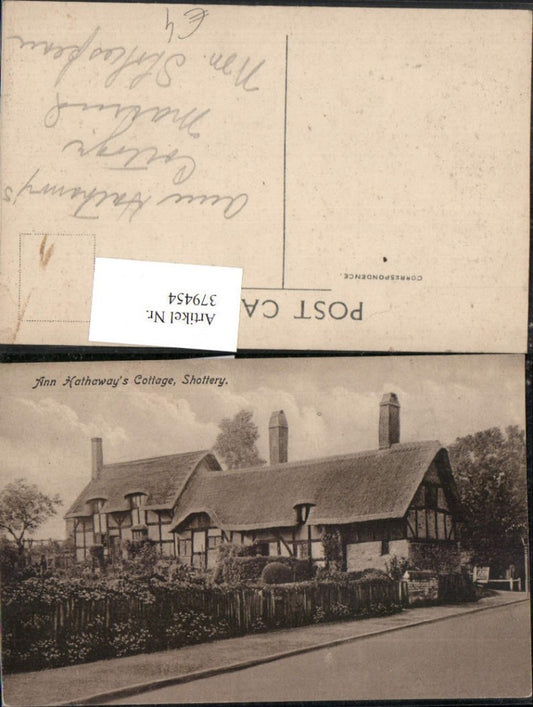 £4
Ann Hathaway's
Cottage
Mrs. Shakespeare
CORRESPONDENCE.
POST CA
Artikel Nr.
379454
Ann Hathaway's Cottage, Shottery.